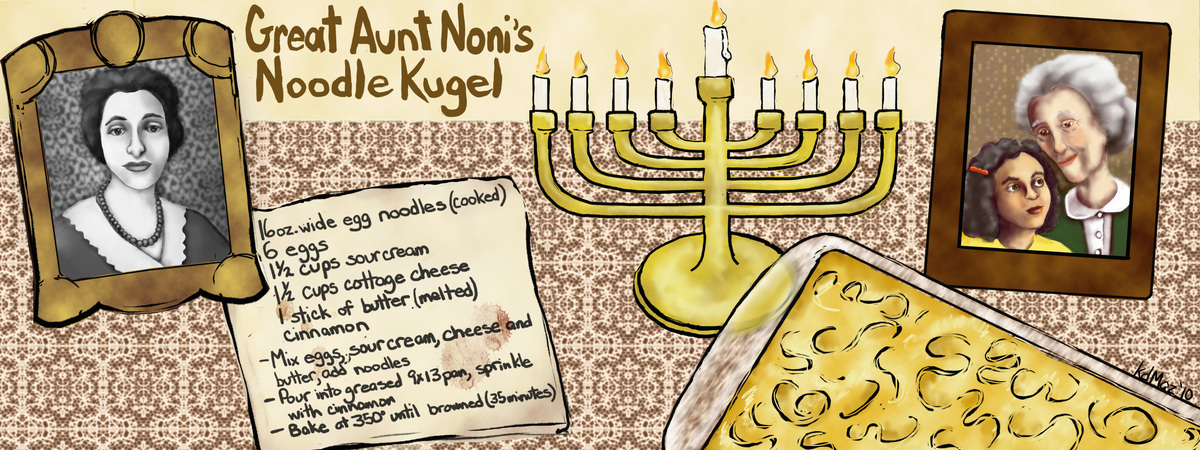 Great Aunt Noni's
Noodle Kugel
16oz. wide egg noodles (cooked)
6 eggs
1½ cups sour cream
1½ cups cottage cheese
1 stick of butter (melted)
cinnamon
- Mix eggs, sour cream, cheese and
butter, add noodles
- Pour into greased 9x13 pan, sprinkle
with cinnamon
- Bake at 350° until browned (35 minutes)
kdMoz '10